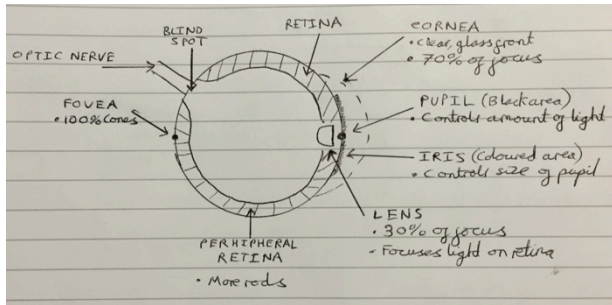 OPTIC NERVE
BLIND
SPOT
RETINA
CORNEA
• clear, glass front
• 70% of focus
FOVEA
• 100% cones
PUPIL (Black area)
• Controls amount of light
IRIS (Coloured area)
• Controls size of pupil
LENS
• 30% of focus
• Focuses light on retina
PERHIPHERAL
RETINA
• More rods